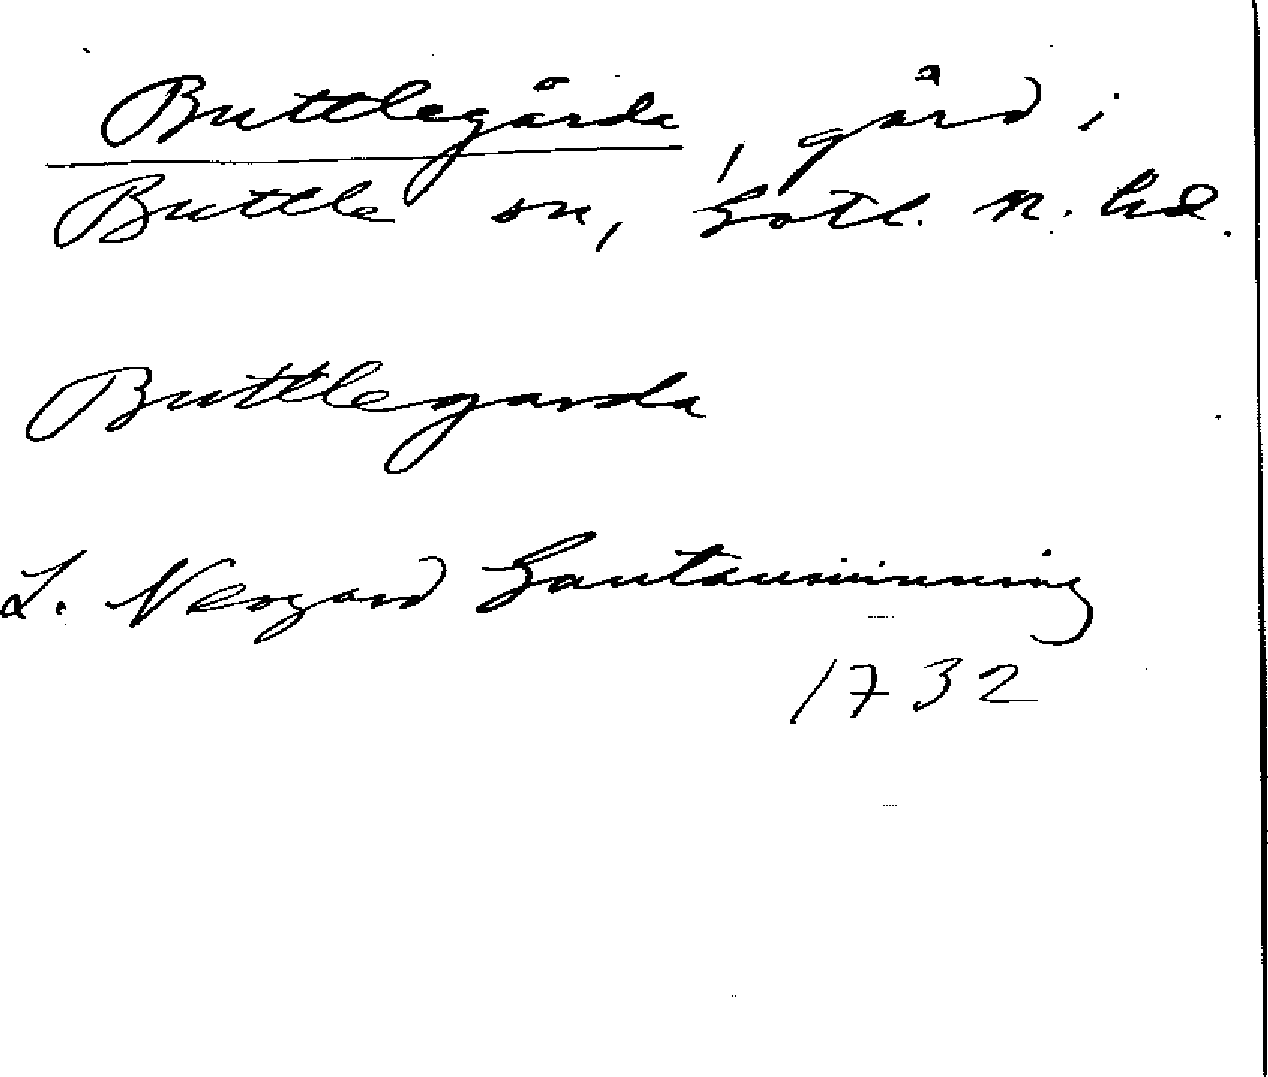 Buttlegårda, gård i
Buttle sn, Gotl. n. hd.
Buttlegarda
L. Neogard Gautauminning
1732